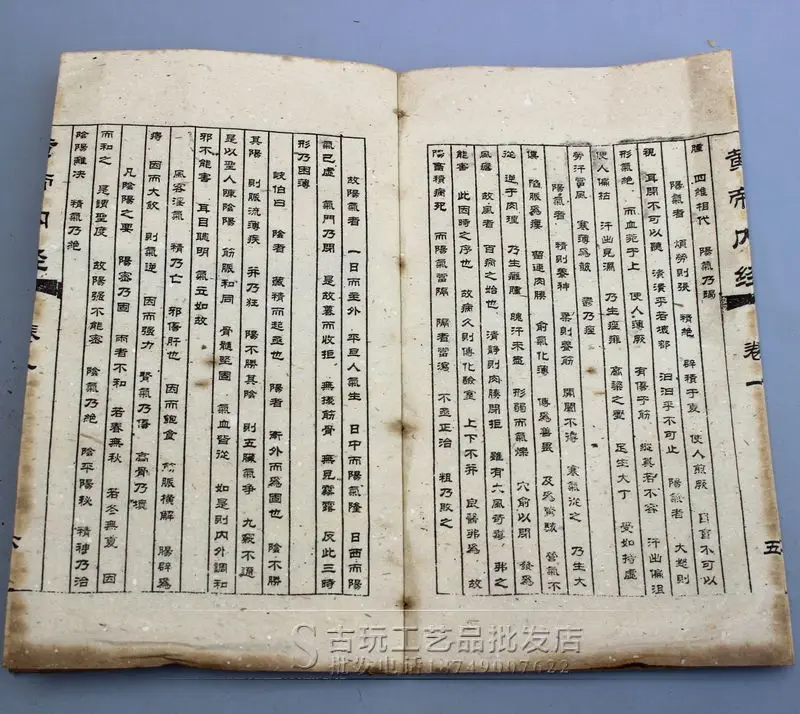 黄帝内经 卷一
五
腫 四維相代 陽氣乃竭
陽氣者 煩勞則張 精絕 辟積于夏 使人煎厥 目盲不可以
視 耳閉不可以聽 潰潰乎若壞都 汩汩乎不可止 陽氣者 大怒則
形氣絕 而血菀于上 使人薄厥 有傷于筋 縱其若不容 汗出偏沮
使人偏枯 汗出見濕 乃生痤疿 高梁之變 足生大丁 受如持虛
勞汗當風 寒薄為皶 鬱乃痤
陽氣者 精則養神 柔則養筋 開闔不得 寒氣從之 乃生大
僂 陷脈為瘻 留連肉腠 俞氣化薄 傳為善畏 及為驚駭 營氣不
從 逆于肉理 乃生癰腫 魄汗未盡 形弱而氣爍 穴俞以閉 發為
風瘧 故風者 百病之始也 清靜則肉腠閉拒 雖有大風苛毒 弗之
能害 此因時之序也 故病久則傳化 上下不并 良醫弗為 故
陽畜積病死 而陽氣當隔 隔者當瀉 不亟正治 粗乃敗之
故陽氣者 一日而主外 平旦人氣生 日中而陽氣隆 日西而陽
氣已虛 氣門乃閉 是故暮而收拒 無擾筋骨 無見霧露 反此三時
形乃困薄
岐伯曰 陰者 藏精而起亟也 陽者 衛外而為固也 陰不勝
其陽 則脈流薄疾 并乃狂 陽不勝其陰 則五臟氣爭 九竅不通
是以聖人陳陰陽 筋脈和同 骨髓堅固 氣血皆從 如是則內外調和
邪不能害 耳目聰明 氣立如故
風客淫氣 精乃亡 邪傷肝也 因而飽食 筋脈橫解 腸澼為
痔 因而大飲 則氣逆 因而強力 腎氣乃傷 高骨乃壞
凡陰陽之要 陽密乃固 兩者不和 若春無秋 若冬無夏 因
而和之 是謂聖度 故陽強不能密 陰氣乃絕 陰平陽秘 精神乃治
陰陽離決 精氣乃絕
黄帝内经
六
古玩工艺品批发店
批发电话18749007622